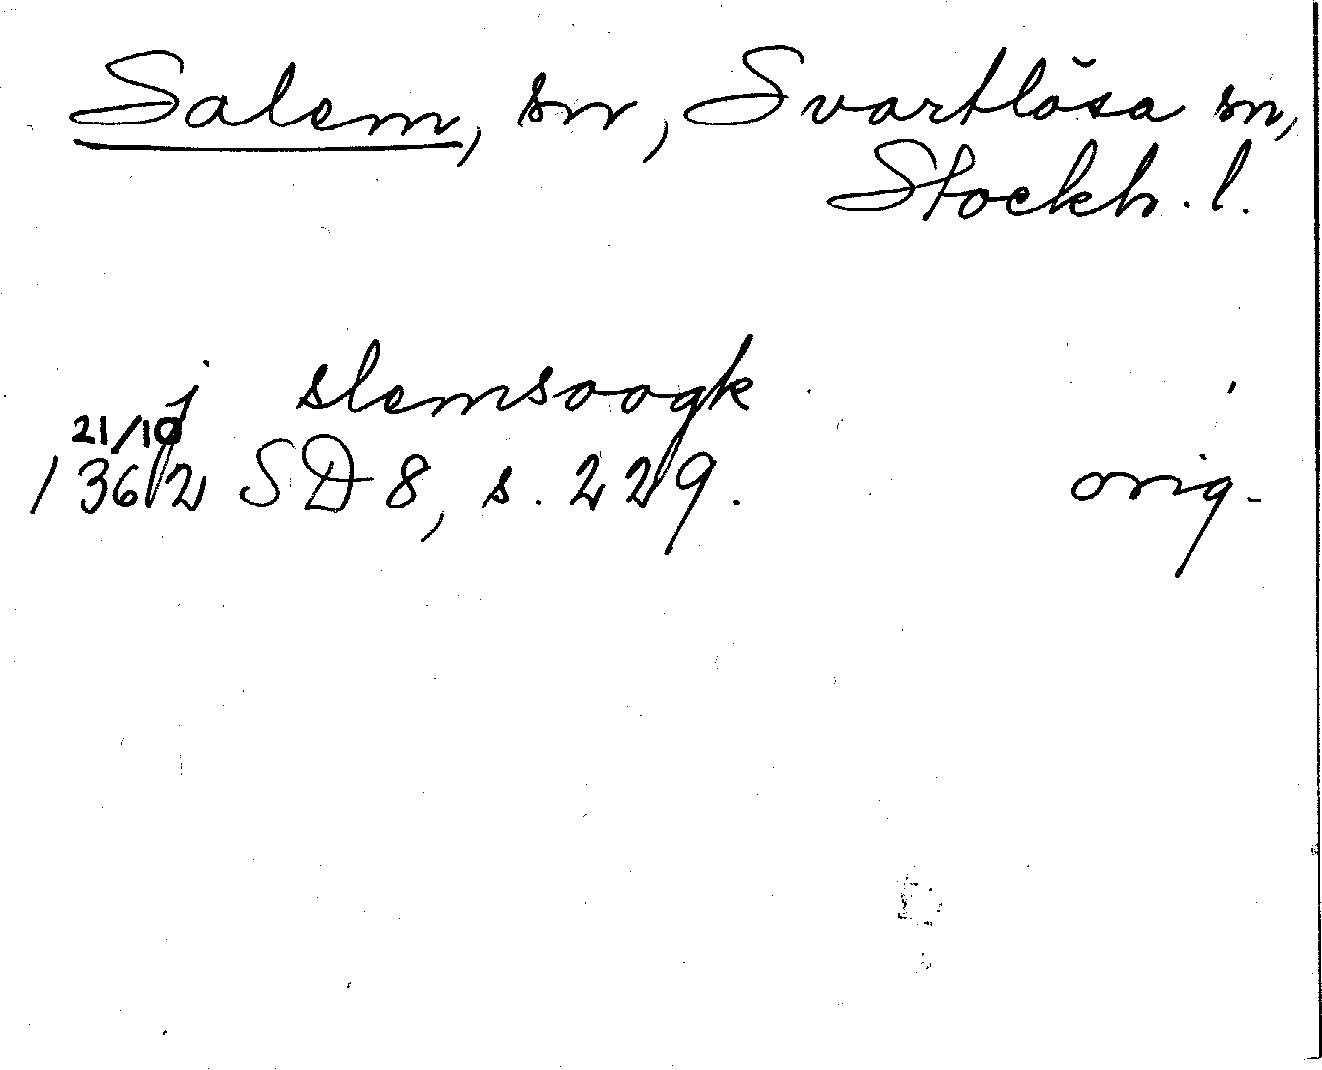 Salem, sn, Svartlösa sn,
Stockh. l.
j slemsoogk
21/10
1362 SD 8, s. 229. orig.